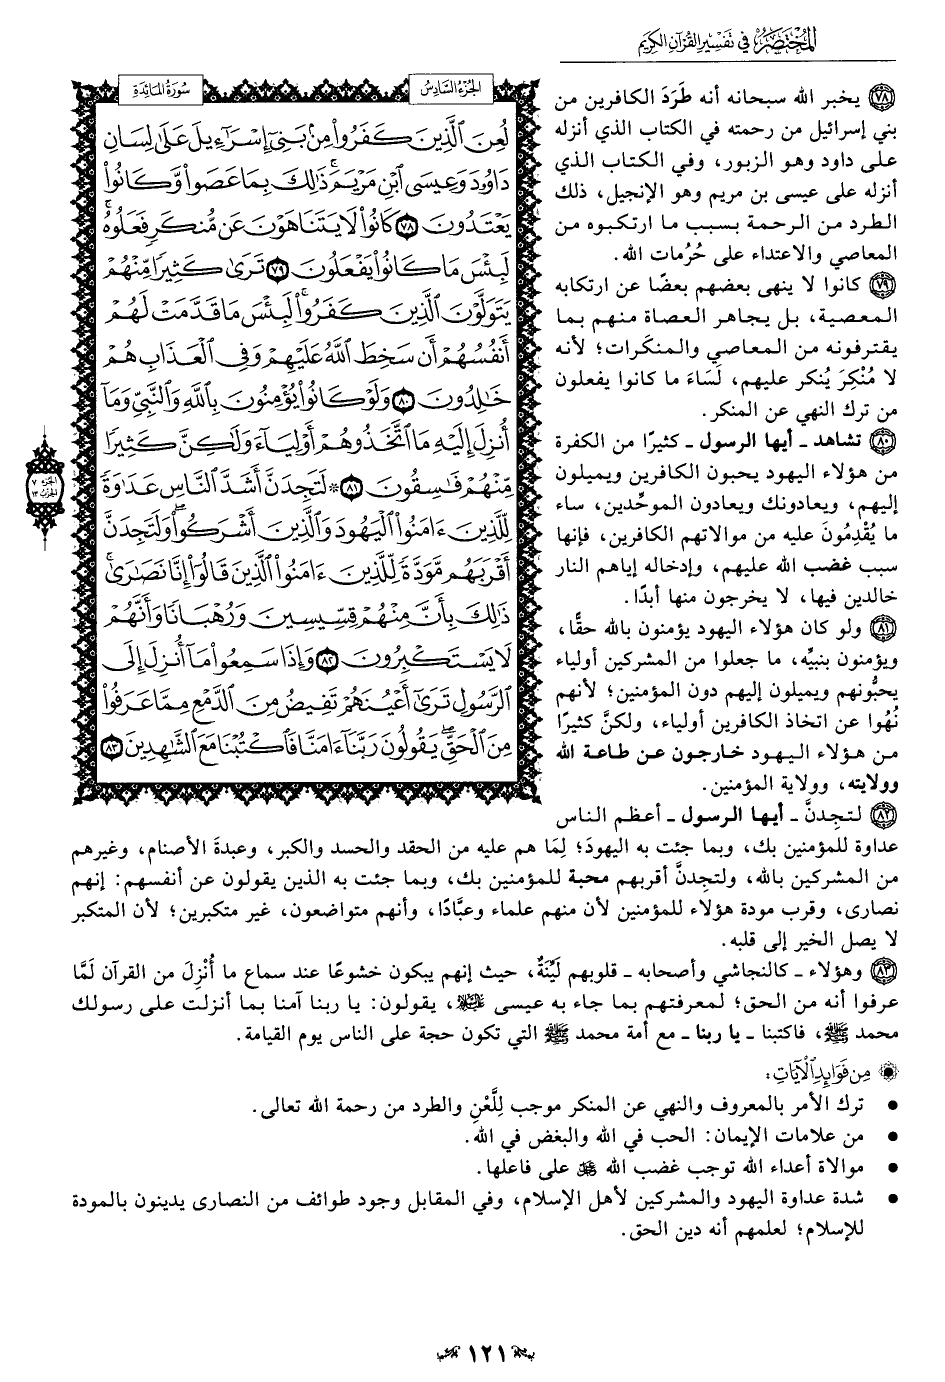 المختصر في تفسير القرآن الكريم
الجزء السادس
سورة المائدة
لُعِنَ ٱلَّذِينَ كَفَرُوا۟ مِنۢ بَنِىٓ إِسْرَٰٓءِيلَ عَلَىٰ لِسَانِ
دَاوُۥدَ وَعِيسَى ٱبْنِ مَرْيَمَ ۚ ذَٰلِكَ بِمَا عَصَوا۟ وَّكَانُوا۟
يَعْتَدُونَ ٧٨ كَانُوا۟ لَا يَتَنَاهَوْنَ عَن مُّنكَرٍ فَعَلُوهُ ۚ
لَبِئْسَ مَا كَانُوا۟ يَفْعَلُونَ ٧٩ تَرَىٰ كَثِيرًا مِّنْهُمْ
يَتَوَلَّوْنَ ٱلَّذِينَ كَفَرُوا۟ ۚ لَبِئْسَ مَا قَدَّمَتْ لَهُمْ
أَنفُسُهُمْ أَن سَخِطَ ٱللَّهُ عَلَيْهِمْ وَفِى ٱلْعَذَابِ هُمْ
خَٰلِدُونَ ٨٠ وَلَوْ كَانُوا۟ يُؤْمِنُونَ بِٱللَّهِ وَٱلنَّبِىِّ وَمَآ
أُنزِلَ إِلَيْهِ مَا ٱتَّخَذُوهُمْ أَوْلِيَآءَ وَلَٰكِنَّ كَثِيرًا
مِّنْهُمْ فَٰسِقُونَ ٨١ ۞ لَتَجِدَنَّ أَشَدَّ ٱلنَّاسِ عَدَٰوَةً
لِّلَّذِينَ ءَامَنُوا۟ ٱلْيَهُودَ وَٱلَّذِينَ أَشْرَكُوا۟ ۖ وَلَتَجِدَنَّ
أَقْرَبَهُم مَّوَدَّةً لِّلَّذِينَ ءَامَنُوا۟ ٱلَّذِينَ قَالُوٓا۟ إِنَّا نَصَٰرَىٰ ۚ
ذَٰلِكَ بِأَنَّ مِنْهُمْ قِسِّيسِينَ وَرُهْبَانًا وَأَنَّهُمْ
لَا يَسْتَكْبِرُونَ ٨٢ وَإِذَا سَمِعُوا۟ مَآ أُنزِلَ إِلَى
ٱلرَّسُولِ تَرَىٰٓ أَعْيُنَهُمْ تَفِيضُ مِنَ ٱلدَّمْعِ مِمَّا عَرَفُوا۟
مِنَ ٱلْحَقِّ ۖ يَقُولُونَ رَبَّنَآ ءَامَنَّا فَٱكْتُبْنَا مَعَ ٱلشَّٰهِدِينَ ٨٣
الجزء ٧
الحزب ١٣
٧٨ يخبر الله سبحانه أنه طَرَدَ الكافرين من
بني إسرائيل من رحمته في الكتاب الذي أنزله
على داود وهو الزبور، وفي الكتاب الذي
أنزله على عيسى بن مريم وهو الإنجيل، ذلك
الطرد من الرحمة بسبب ما ارتكبوه من
المعاصي والاعتداء على حُرُمات الله.
٧٩ كانوا لا ينهى بعضهم بعضًا عن ارتكابه
المعصية، بل يجاهر العصاة منهم بما
يقترفونه من المعاصي والمنكَرات؛ لأنه
لا مُنْكِرَ يُنكر عليهم، لَسَاءَ ما كانوا يفعلون
من ترك النهي عن المنكر.
٨٠ تشاهد - أيها الرسول - كثيرًا من الكفرة
من هؤلاء اليهود يحبون الكافرين ويميلون
إليهم، ويعادونك ويعادون الموحِّدين، ساء
ما يُقْدِمُونَ عليه من موالاتهم الكافرين، فإنها
سبب غضب الله عليهم، وإدخاله إياهم النار
خالدين فيها، لا يخرجون منها أبدًا.
٨١ ولو كان هؤلاء اليهود يؤمنون بالله حقًّا،
ويؤمنون بنبيِّه، ما جعلوا من المشركين أولياء
يحبُّونهم ويميلون إليهم دون المؤمنين؛ لأنهم
نُهُوا عن اتخاذ الكافرين أولياء، ولكنَّ كثيرًا
من هؤلاء اليهود خارجون عن طاعة الله
وولايته، وولاية المؤمنين.
٨٢ لتجدنَّ - أيها الرسول - أعظم الناس
عداوة للمؤمنين بك، وبما جئت به اليهودَ؛ لِمَا هم عليه من الحقد والحسد والكبر، وعبدةَ الأصنام، وغيرهم
من المشركين بالله، ولتجِدنَّ أقربهم محبة للمؤمنين بك، وبما جئت به الذين يقولون عن أنفسهم: إنهم
نصارى، وقرب مودة هؤلاء للمؤمنين لأن منهم علماء وعبَّادًا، وأنهم متواضعون، غير متكبرين؛ لأن المتكبر
لا يصل الخير إلى قلبه.
٨٣ وهؤلاء - كالنجاشي وأصحابه - قلوبهم لَيِّنَةٌ، حيث إنهم يبكون خشوعًا عند سماع ما أُنْزِلَ من القرآن لَمَّا
عرفوا أنه من الحق؛ لمعرفتهم بما جاء به عيسى عليه السلام، يقولون: يا ربنا آمنا بما أنزلت على رسولك
محمد ﷺ، فاكتبنا - يا ربنا - مع أمة محمد ﷺ التي تكون حجة على الناس يوم القيامة.
من فوائد الآيات:
• ترك الأمر بالمعروف والنهي عن المنكر موجب لِلَّعْنِ والطرد من رحمة الله تعالى.
• من علامات الإيمان: الحب في الله والبغض في الله.
• موالاة أعداء الله توجب غضب الله ﷻ على فاعلها.
• شدة عداوة اليهود والمشركين لأهل الإسلام، وفي المقابل وجود طوائف من النصارى يدينون بالمودة
للإسلام؛ لعلمهم أنه دين الحق.
١٢١